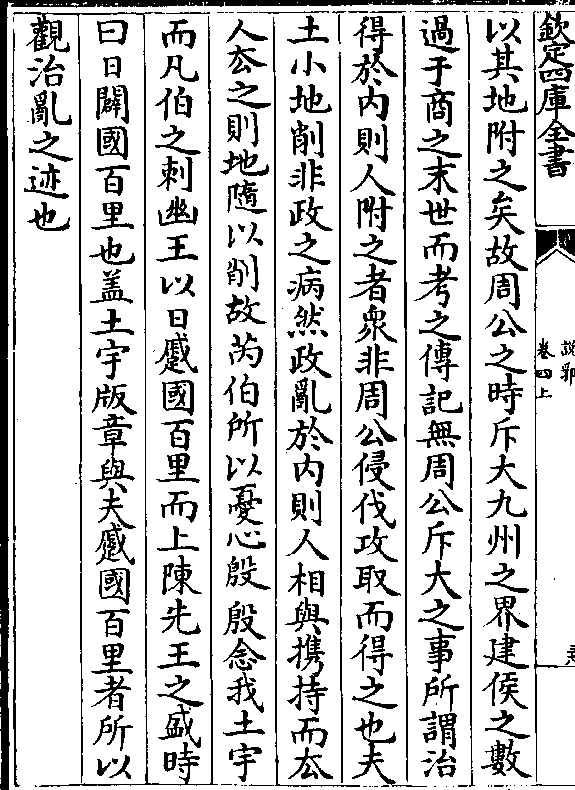 欽定四庫全書
說郛
卷四上
以其地附之矣故周公之時斥大九州之界建侯之數
過于商之末世而考之傳記無周公斥大之事所謂治
得於内則人附之者衆非周公侵伐攻取而得之也夫
土小地削非政之病然政亂於内則人相與攜持而去
人去之則地隨以削故芮伯所以憂心殷殷念我土宇
而凡伯之刺幽王以日蹙國百里而上陳先王之盛時
曰日闢國百里也盖土宇版章與夫蹙國百里者所以
觀治亂之迹也